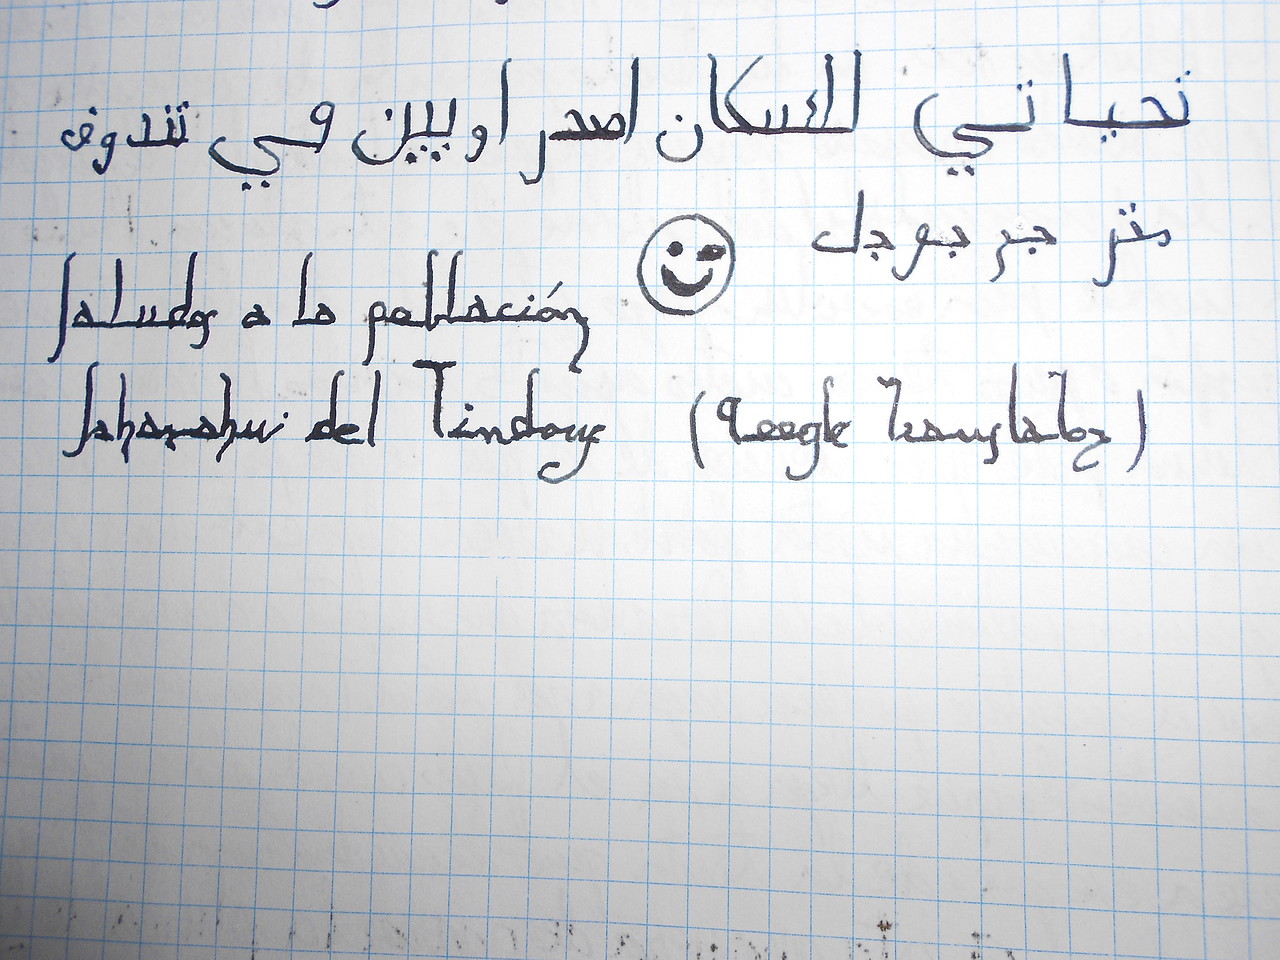 تحياتي للسكان اصحراويين في تندوف
مترجم جوجل
saludos a la población
saharahui del Tindouf (Google translator)